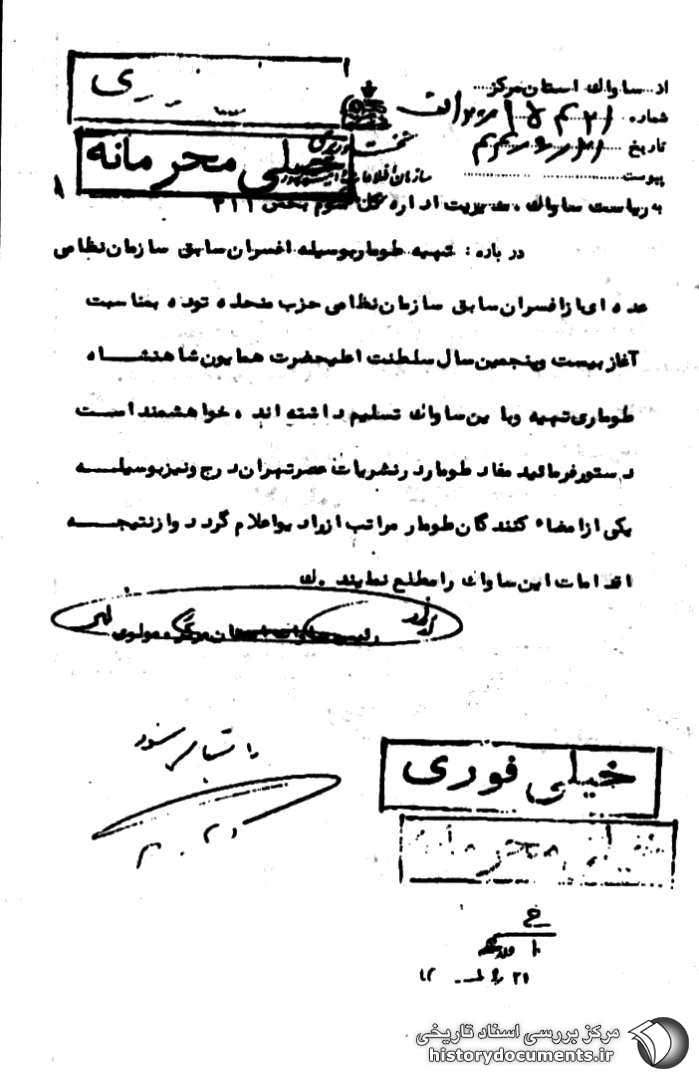 از ساواك استان مرکز
شماره
تاریخ
پیوست
نخست وزیری
سازمان اطلاعات و امنیت کشور
خیلی محرمانه
به ریاست ساواك ـ مدیریت اداره کل سوم بخش ۳۱۱
درباره : تهیه طومار بوسیله افسران سابق سازمان نظامی
عده ای از افسران سابق سازمان نظامی حزب منحله توده بمناسبت
آغاز بیست و پنجمین سال سلطنت اعلیحضرت همایون شاهنشاه
طوماری تهیه و باین ساواك تسلیم داشته اند ، خواهشمند است
دستور فرمائید مفاد طومار در نشریات عصر تهران درج و نیز بوسیله
یکی از امضاء کنندگان طومار مراتب از رادیو اعلام گردد و از نتیجه
اقدامات این ساواك را مطلع نمایند .ك
رئیس ساواك استان مرکز ـ مولوی
خیلی فوری
خیلی محرمانه
مرکز بررسی اسناد تاریخی
historydocuments.ir